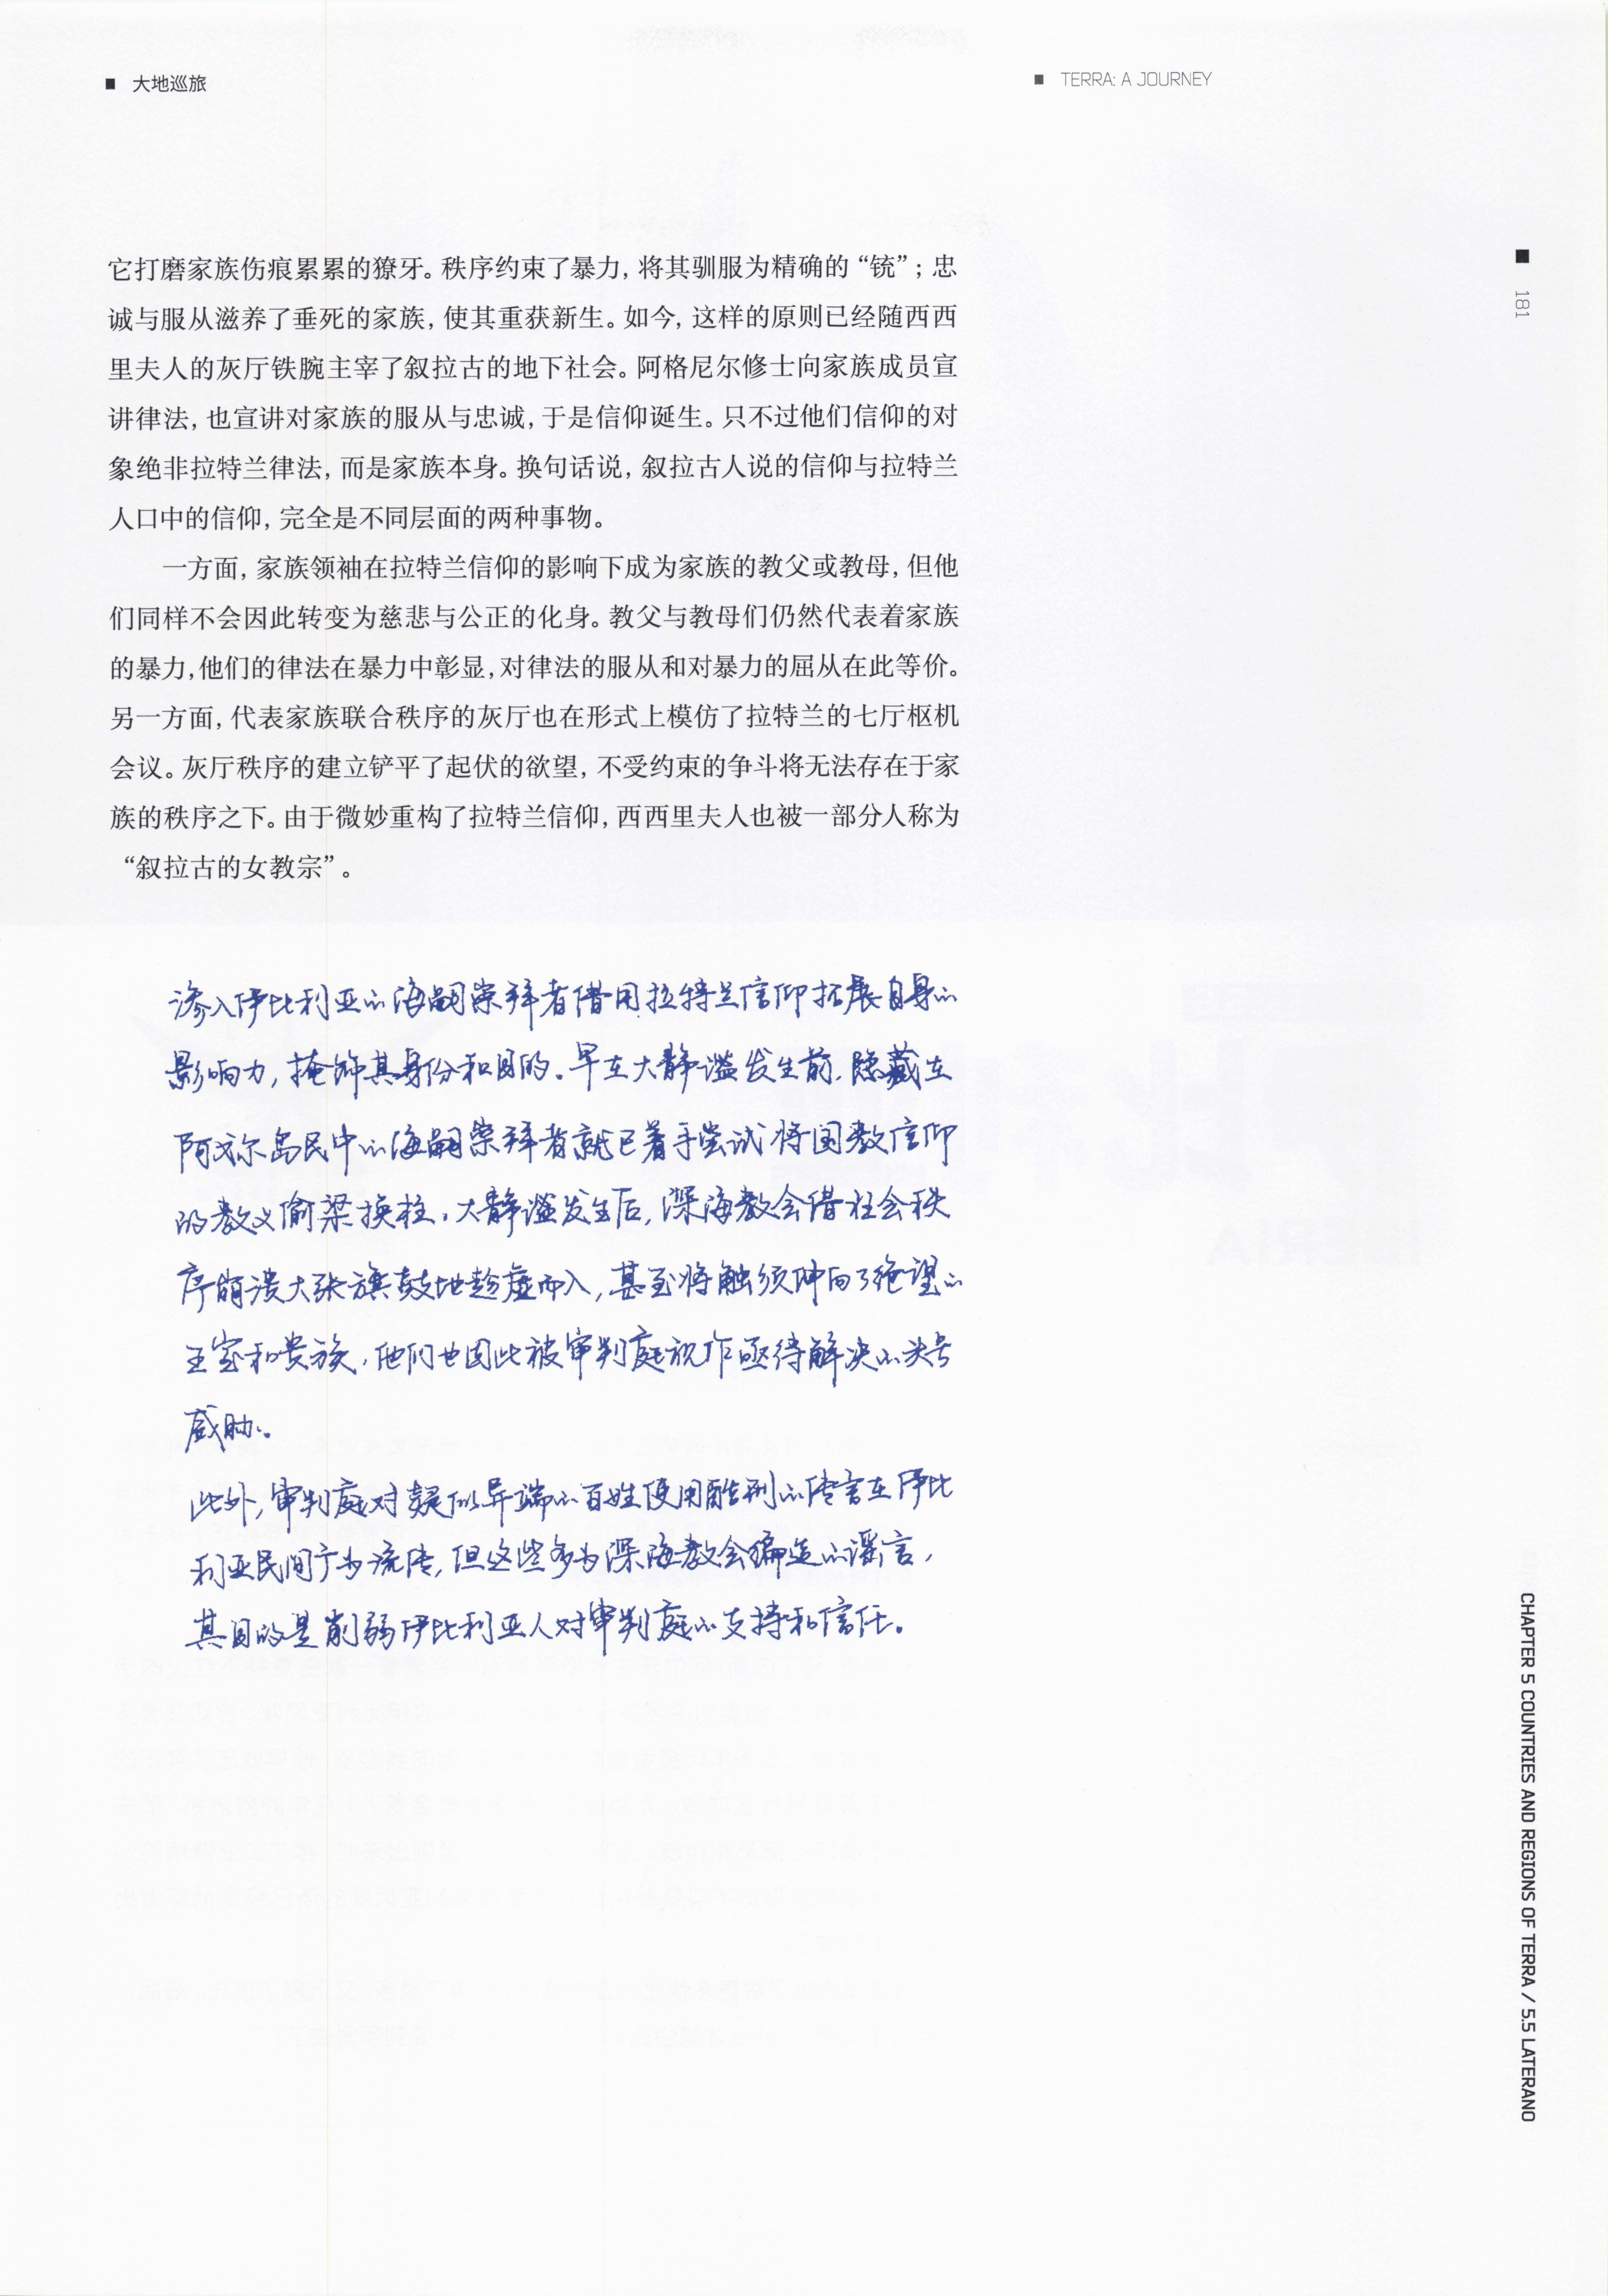 大地巡旅
TERRA: A JOURNEY
181
它打磨家族伤痕累累的獠牙。秩序约束了暴力，将其驯服为精确的“铳”；忠
诚与服从滋养了垂死的家族，使其重获新生。如今，这样的原则已经随西西
里夫人的灰厅铁腕主宰了叙拉古的地下社会。阿格尼尔修士向家族成员宣
讲律法，也宣讲对家族的服从与忠诚，于是信仰诞生。只不过他们信仰的对
象绝非拉特兰律法，而是家族本身。换句话说，叙拉古人说的信仰与拉特兰
人口中的信仰，完全是不同层面的两种事物。
一方面，家族领袖在拉特兰信仰的影响下成为家族的教父或教母，但他
们同样不会因此转变为慈悲与公正的化身。教父与教母们仍然代表着家族
的暴力，他们的律法在暴力中彰显，对律法的服从和对暴力的屈从在此等价。
另一方面，代表家族联合秩序的灰厅也在形式上模仿了拉特兰的七厅枢机
会议。灰厅秩序的建立铲平了起伏的欲望，不受约束的争斗将无法存在于家
族的秩序之下。由于微妙重构了拉特兰信仰，西西里夫人也被一部分人称为
“叙拉古的女教宗”。
渗入伊比利亚的海嗣崇拜者借用拉特兰信仰拓展自身的
影响力，掩饰其身份和目的。早在大静谧发生前，隐藏在
阿戈尔岛民中的海嗣崇拜者就已着手尝试将国教信仰
的教义偷梁换柱。大静谧发生后，深海教会借社会秩
序崩溃大张旗鼓地趁虚而入，甚至将触须伸向了绝望的
王室和贵族，他们也因此被审判庭视作亟待解决的头号
威胁。
此外，审判庭对疑似异端的百姓使用酷刑的传言在伊比
利亚民间广为流传，但这些多为深海教会编造的谣言，
其目的是削弱伊比利亚人对审判庭的支持和信任。
CHAPTER 5 COUNTRIES AND REGIONS OF TERRA / 5.5 LATERANO